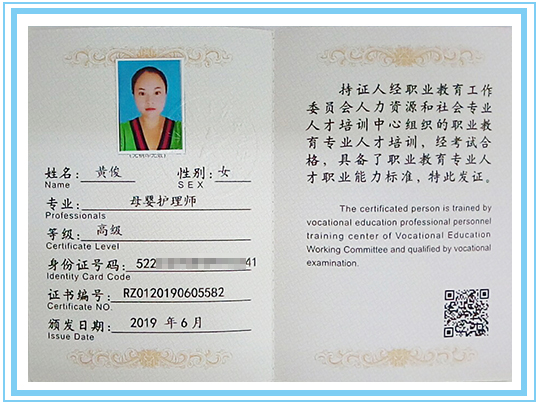 姓名：黄俊 性别：女
Name SEX
专业：母婴护理师
Professionals
等级：高级
Certificate Level
身份证号码：522 41
Identity Card Code
证书编号：RZ0120190605582
Certificate NO.
颁发日期：2019 年 6 月
Issue Date
持证人经职业教育工作
委员会人力资源和社会专业
人才培训中心组织的职业教
育专业人才培训，经考试合
格，具备了职业教育专业人
才职业能力标准，特此发证。
The certificated person is trained by
vocational education professional personnel
training center of Vocational Education
Working Committee and qualified by vocational
examination.